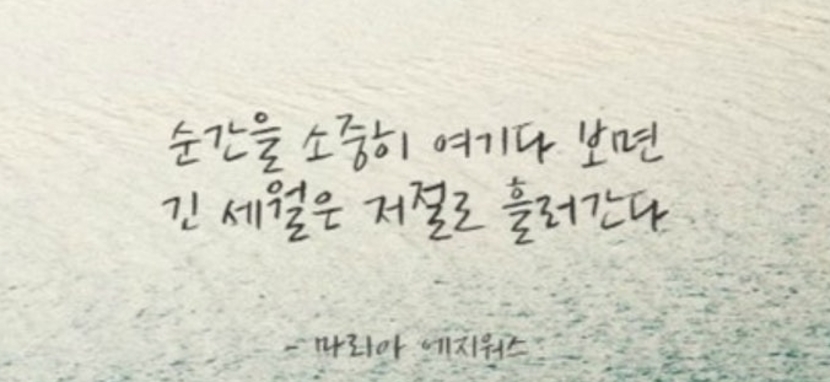 순간을 소중히 여기다 보면
긴 세월은 저절로 흘러간다
- 마리아 에지워스